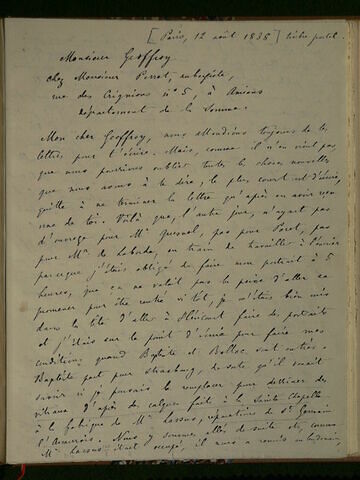 [Paris, 12 août 1838] timbre postal.
Monsieur Geoffroy
chez Monsieur Perrot, aubergiste,
rue des Crignons n° 5, à Amiens
Département de la Somme.
Mon cher Geoffroy, nous attendions toujours de tes
lettres, pour t'écrire. Mais, comme il n'en vient pas,
que nous pourrions oublier toutes les choses nouvelles
que nous avons à te dire, le plus court est d'écrire,
quitte à ne terminer la lettre qu'après en avoir reçu
une de toi. Voilà que, l'autre jour, n'ayant pas
d'ouvrage pour Mr Quesnel, pas pour Péret, pas
pour Mr de Laborde, en train de travailler à
parce que j'étais obligé de faire mon portrait à 5
heures, que ça ne valait pas la peine d'aller se
promener pour être rentré si tôt, je m'étais bien mis
dans la tête d'aller à faire des portraits
et j'étais sur le point d'écrire pour faire mes
conditions quand Baptiste et Belloc sont entrés.
Baptiste part pour Strasbourg, de sorte qu'il venait
savoir si je pouvais le remplacer pour dessiner des
vitraux d'après des calques fait à la Sainte Chapelle
à la fabrique de Mr Lassus, réparateur de St Germain
l'Auxerrois. Nous y sommes allés de suite et, comme
Mr Lassus était occupé, il nous a remis au lendemain,